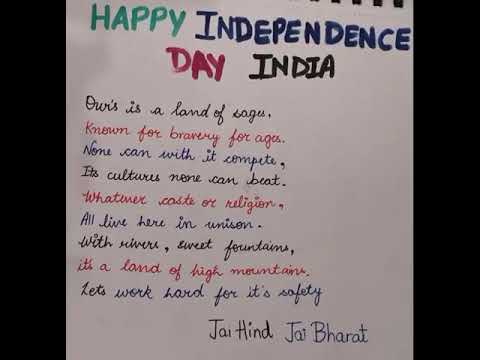 HAPPY INDEPENDENCE
DAY INDIA
Our's is a land of sages,
Known for bravery for ages.
None can with it compete,
Its cultures none can beat.
Whatever caste or religion,
All live here in unison.
With rivers, sweet fountains,
it's a land of high mountains.
Lets work hard for it's safety
Jai Hind Jai Bharat